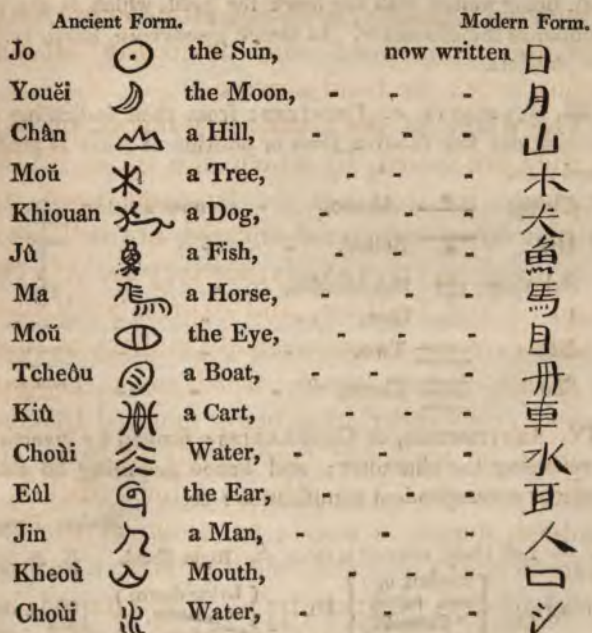 Ancient Form. Modern Form.
Jo the Sun, now written 日
Youĕi the Moon, - - - 月
Chân a Hill, - - - 山
Moŭ a Tree, - - - 木
Khiouan a Dog, - - - 犬
Jû a Fish, - - - 魚
Ma a Horse, - - - 馬
Moŭ the Eye, - - - 目
Tcheôu a Boat, - - - 舟
Kiû a Cart, - - - 車
Choùi Water, - - - 水
Eûl the Ear, - - - 耳
Jin a Man, - - - 人
Kheoù Mouth, - - - 口
Choùi Water, - - -